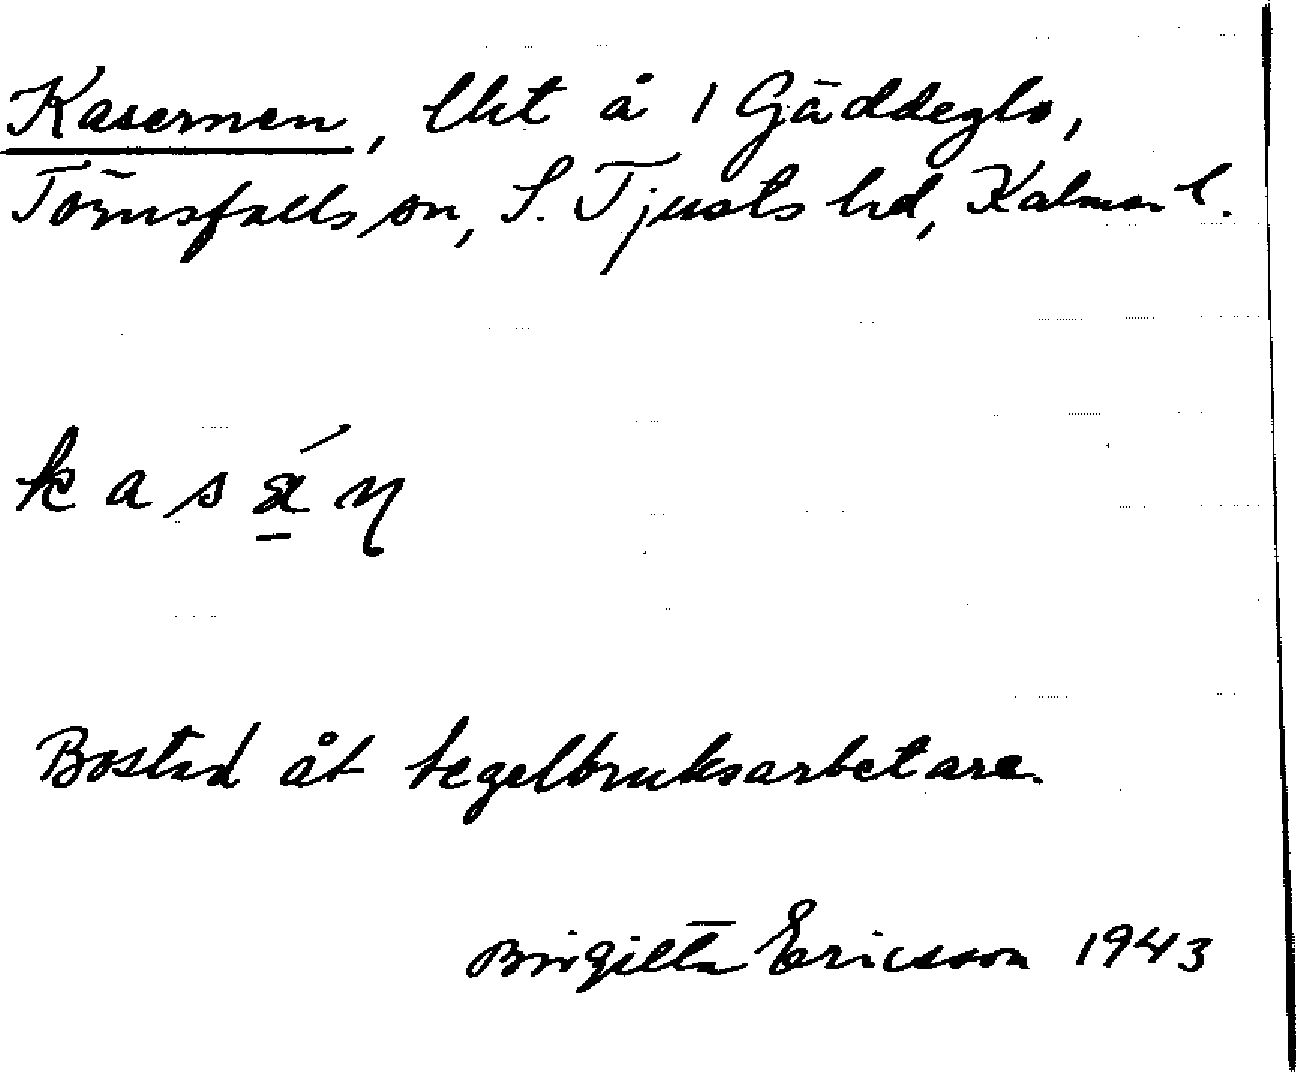 Kasernen, lht å 1 Gäddeglo,
Törnsfalls sn, S. Tjusts hd, Kalmar l.
kasǽn
Bostad åt tegelbruksarbetare.
Birgitta Ericsson 1943